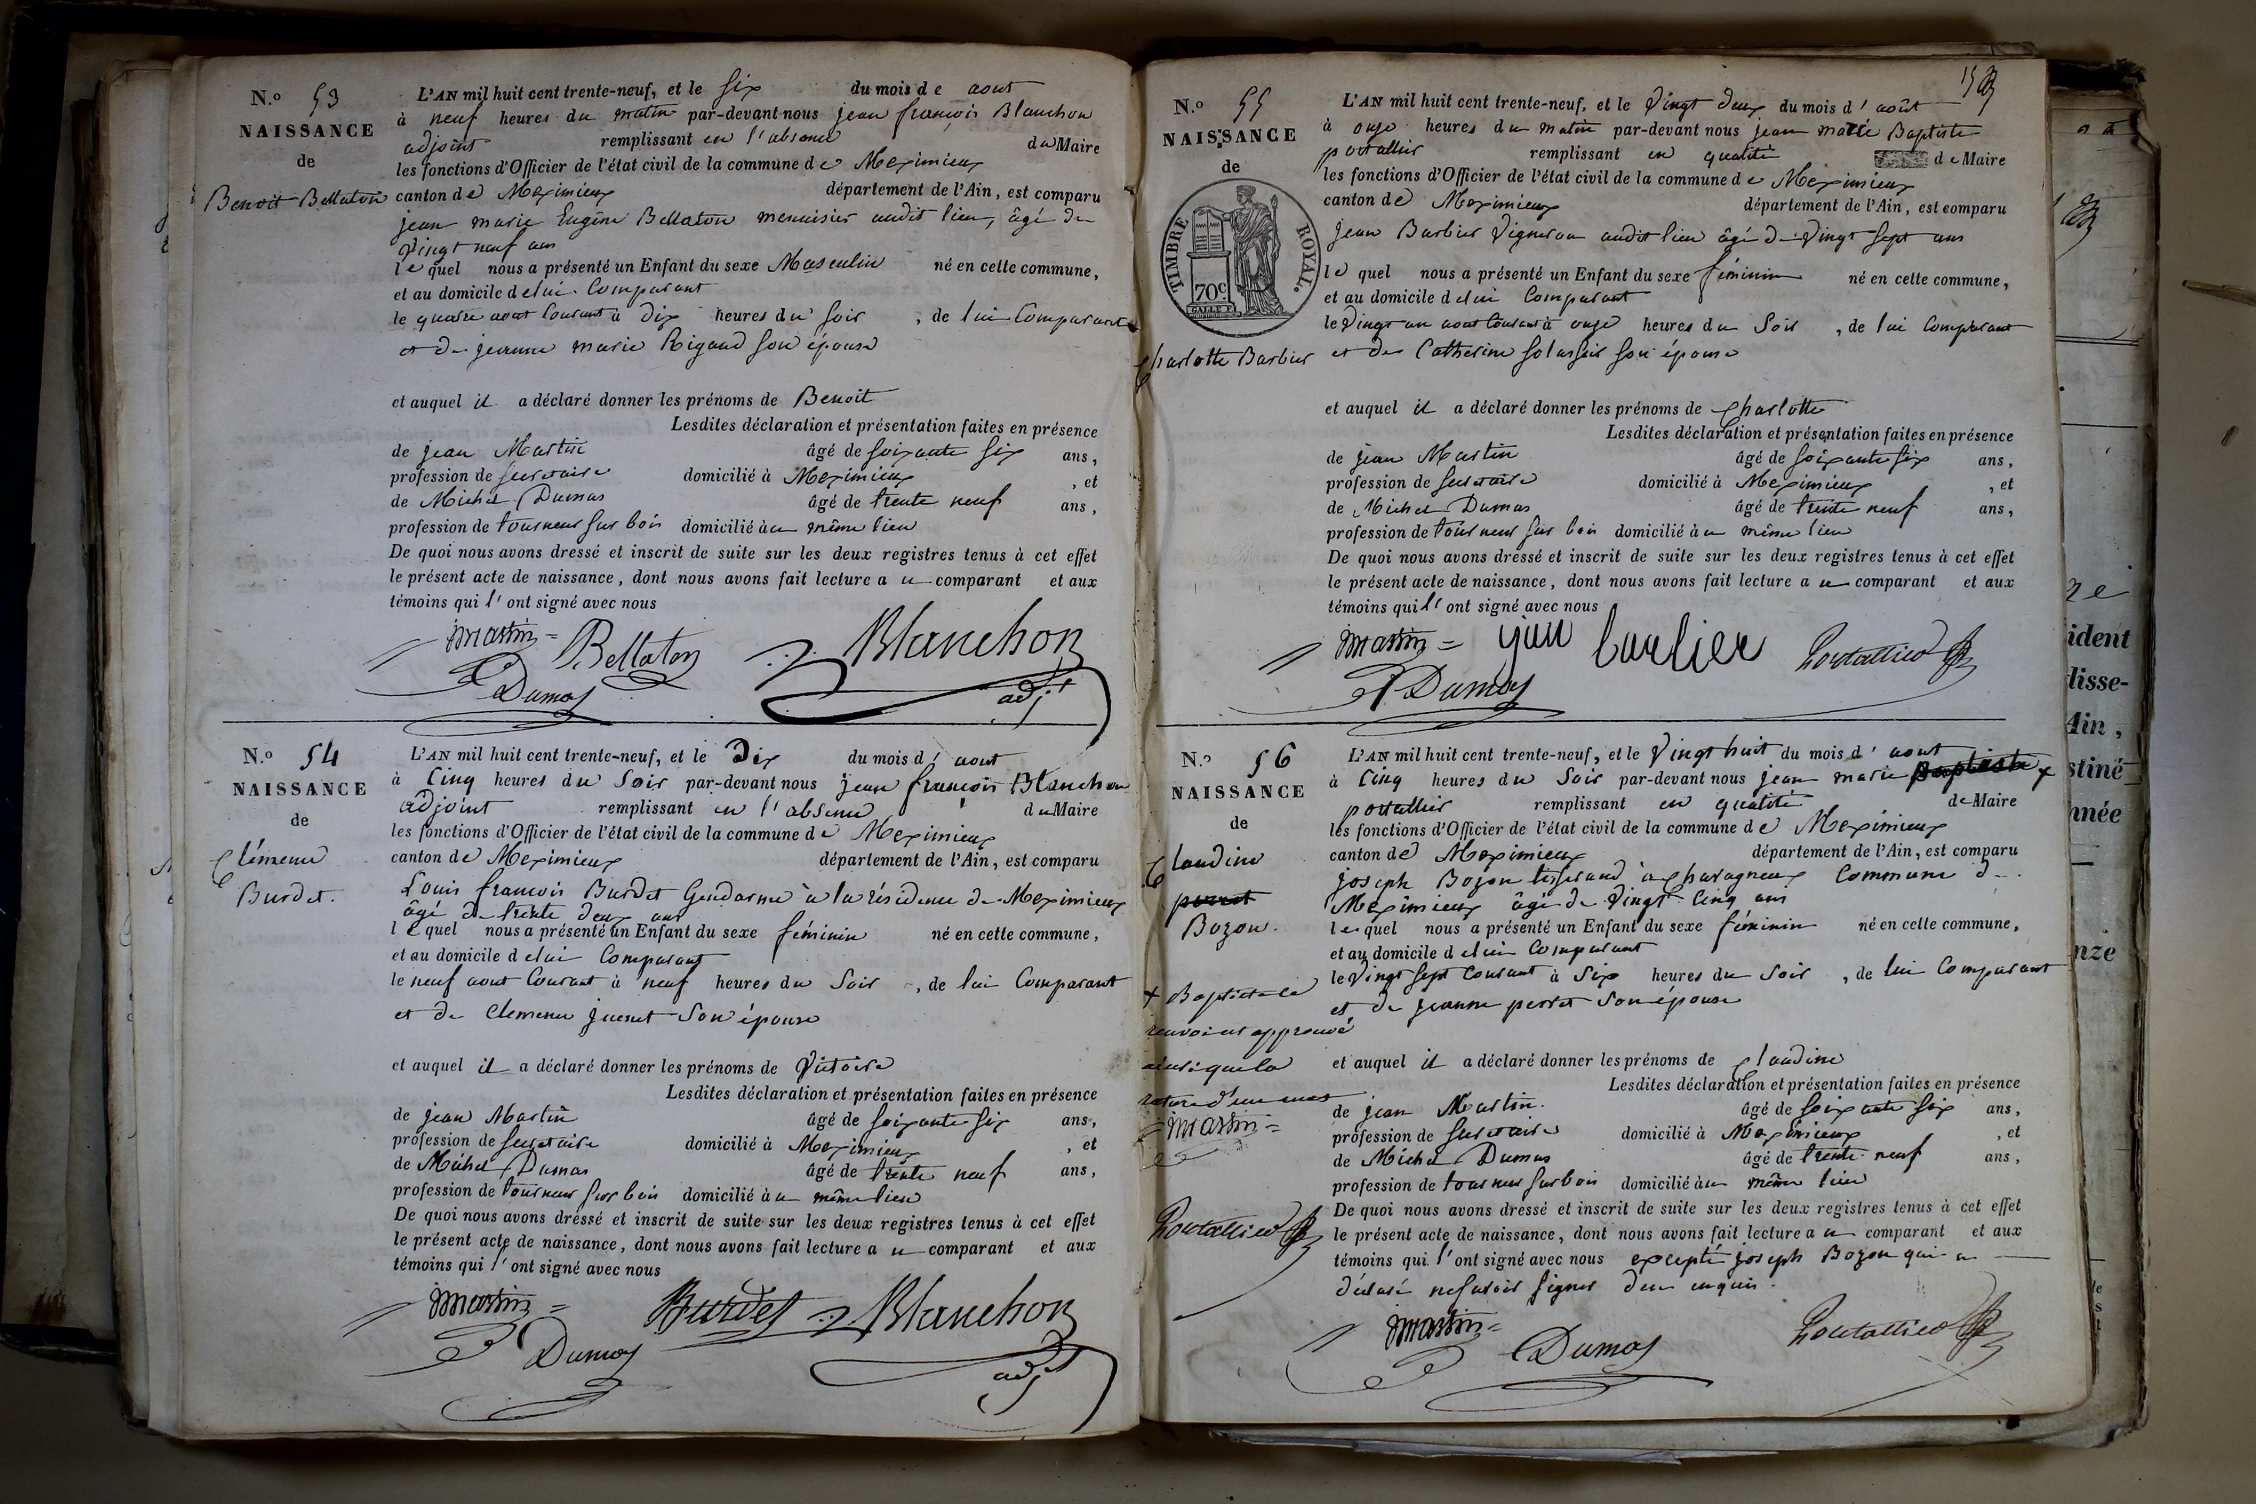 N.o 53
NAISSANCE
de
Benoit Bellaton
L'AN mil huit cent trente-neuf, et le six du mois de aout
à neuf heures du matin par-devant nous jean françois Blanchon
adjoint remplissant en l'absence du Maire
les fonctions d'Officier de l'état civil de la commune de Meximieux
canton de Meximieux département de l'Ain, est comparu
jean marie Eugène Bellaton menuisier audit lieu, âgé de
vingt neuf ans
le quel nous a présenté un Enfant du sexe Masculin né en cette commune,
et au domicile de lui Comparant
le quatre aout Courant à dix heures du soir, de lui Comparant
et de jeanne marie Rigaud son épouse
et auquel il a déclaré donner les prénoms de Benoit
Lesdites déclaration et présentation faites en présence
de jean Martin âgé de soixante six ans,
profession de secretaire domicilié à Meximieux, et
de Michel Dumas âgé de trente neuf ans,
profession de tourneur sur bois domicilié au même lieu
De quoi nous avons dressé et inscrit de suite sur les deux registres tenus à cet effet
le présent acte de naissance, dont nous avons fait lecture au comparant et aux
témoins qui l'ont signé avec nous
Martin Bellaton Blanchon
Dumas adjt
N.o 54
NAISSANCE
de
Clémence
Burdet.
L'AN mil huit cent trente-neuf, et le Dix du mois d'aout
à Cinq heures du Soir par-devant nous jean françois Blanchon
adjoint remplissant en l'absence du Maire
les fonctions d'Officier de l'état civil de la commune de Meximieux
canton de Meximieux département de l'Ain, est comparu
Louis françois Burdet Gendarme à la résidence de Meximieux
âgé de trente deux ans
le quel nous a présenté un Enfant du sexe féminin né en cette commune,
et au domicile de lui Comparant
le neuf aout Courant à neuf heures du Soir, de lui Comparant
et de Clemence juenet Son épouse
et auquel il a déclaré donner les prénoms de Victoire
Lesdites déclaration et présentation faites en présence
de jean Martin âgé de soixante six ans,
profession de secretaire domicilié à Meximieux, et
de Michel Dumas âgé de trente neuf ans,
profession de tourneur sur bois domicilié au même lieu
De quoi nous avons dressé et inscrit de suite sur les deux registres tenus à cet effet
le présent acte de naissance, dont nous avons fait lecture au comparant et aux
témoins qui l'ont signé avec nous
Martin Burdet Blanchon
Dumas adjt
15
N.o 55
NAISSANCE
de
TIMBRE ROYAL.
70c
Charlotte Barbier
L'AN mil huit cent trente-neuf, et le Vingt deux du mois d'août
à onze heures du matin par-devant nous jean marie Baptiste
portallier remplissant en qualité de Maire
les fonctions d'Officier de l'état civil de la commune de Meximieux
canton de Meximieux département de l'Ain, est comparu
jean Barbier Vigneron audit lieu âgé de vingt sept ans
le quel nous a présenté un Enfant du sexe féminin né en cette commune,
et au domicile de lui Comparant
le vingt un aout Courant à onze heures du Soir, de lui Comparant
et de Catherine son épouse
et auquel il a déclaré donner les prénoms de Charlotte
Lesdites déclaration et présentation faites en présence
de jean Martin âgé de soixante six ans,
profession de secretaire domicilié à Meximieux, et
de Michel Dumas âgé de trente neuf ans,
profession de tourneur sur bois domicilié au même lieu
De quoi nous avons dressé et inscrit de suite sur les deux registres tenus à cet effet
le présent acte de naissance, dont nous avons fait lecture au comparant et aux
témoins qui l'ont signé avec nous
Martin jan barbier Portallier
Dumas
N.o 56
NAISSANCE
de
Claudine
perret
Bozon.
x Baptiste le
renvoi est approuvé
ainsi que la
rature d'un mot
Martin
Portallier
L'AN mil huit cent trente-neuf, et le Vingt huit du mois d'aout
à Cinq heures du Soir par-devant nous jean marie Baptiste x
portallier remplissant en qualité de Maire
les fonctions d'Officier de l'état civil de la commune de Meximieux
canton de Meximieux département de l'Ain, est comparu
joseph Bozon tisserand à Charagneux Commune de
Meximieux âgé de Vingt Cinq ans
le quel nous a présenté un Enfant du sexe féminin né en cette commune,
et au domicile de lui Comparant
le Vingt Sept Courant à Six heures du Soir, de lui Comparant
et de jeanne perret Son épouse
et auquel il a déclaré donner les prénoms de Claudine
Lesdites déclaration et présentation faites en présence
de jean Martin. âgé de soixante six ans,
profession de secretaire domicilié à Meximieux, et
de Michel Dumas âgé de trente neuf ans,
profession de tourneur sur bois domicilié au même lieu
De quoi nous avons dressé et inscrit de suite sur les deux registres tenus à cet effet
le présent acte de naissance, dont nous avons fait lecture au comparant et aux
témoins qui l'ont signé avec nous excepté joseph Bozon qui a
déclaré ne savoir signer de ce enquis.
Martin Dumas Portallier
ident
lisse-
Ain,
stiné
nnée
nze